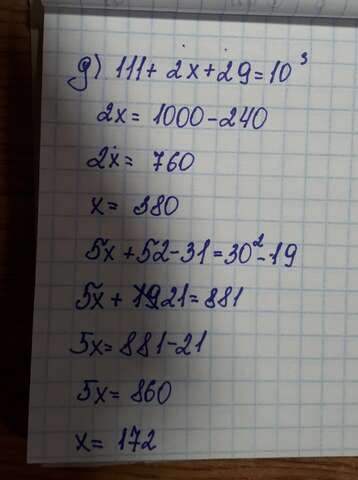 g) 111 + 2x + 29 = 10³
2x = 1000 - 240
2x = 760
x = 380
5x + 52 - 31 = 30² - 19
5x + 21 = 881
5x = 881 - 21
5x = 860
x = 172